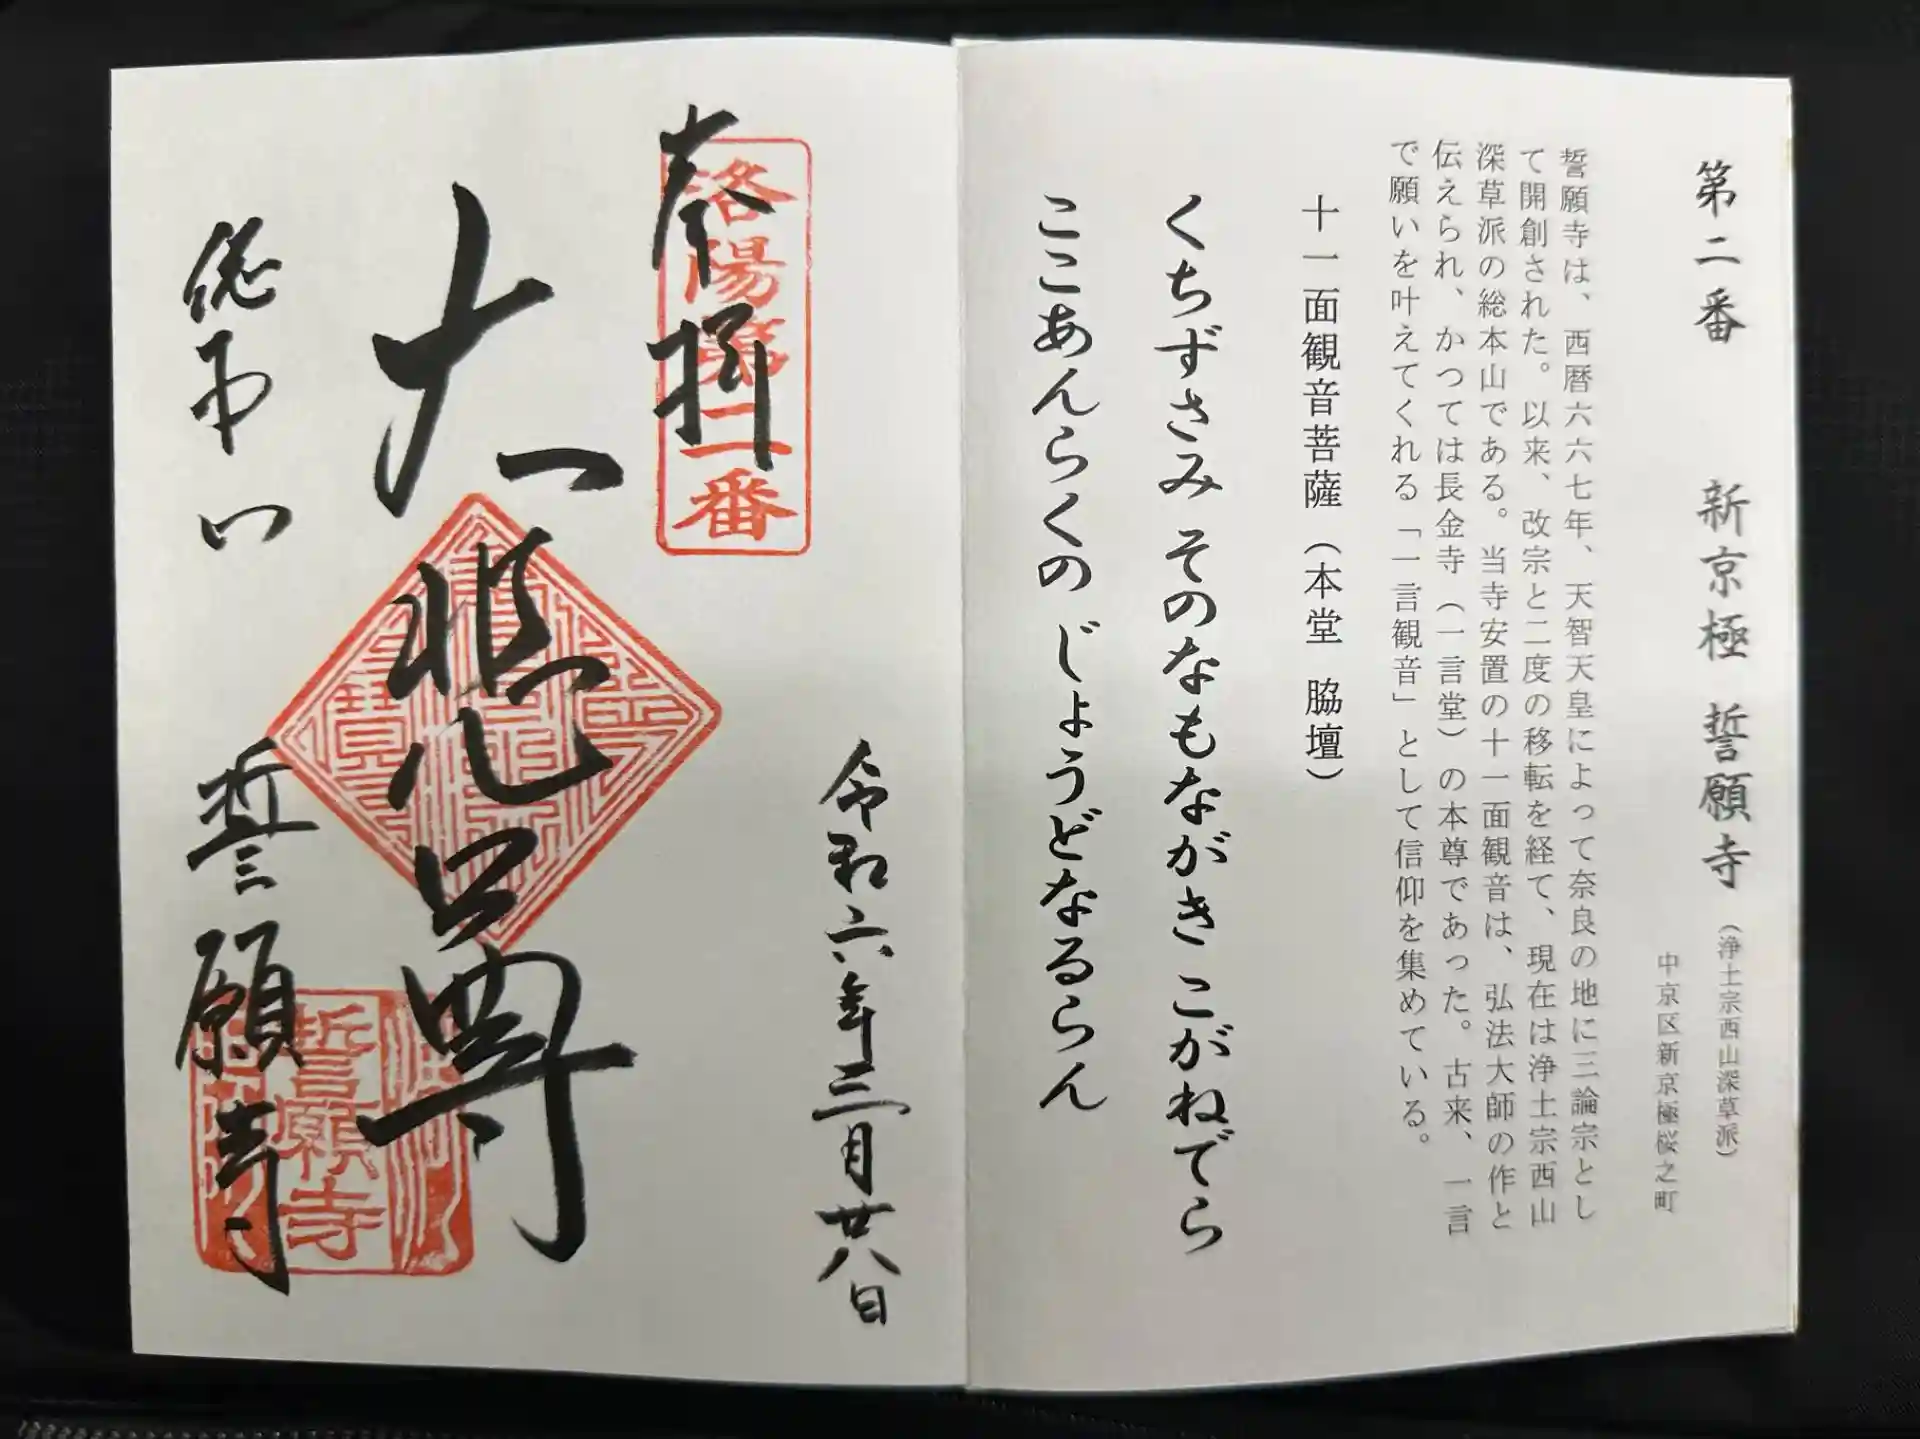 第二番　新京極 誓願寺（浄土宗西山深草派）
中京区新京極桜之町
誓願寺は、西暦六六七年、天智天皇によって奈良の地に三論宗とし
て開創された。以来、改宗と二度の移転を経て、現在は浄土宗西山
深草派の総本山である。当寺安置の十一面観音は、弘法大師の作と
伝えられ、かつては長金寺（一言堂）の本尊であった。古来、一言
で願いを叶えてくれる「一言観音」として信仰を集めている。
十一面観音菩薩（本堂 脇壇）
くちずさみ そのなもながき こがねでら
ここあんらくの じょうどなるらん
令和六年三月廿八日
奉拝
洛陽第二番
大悲尊
総本山
誓願寺
誓願寺